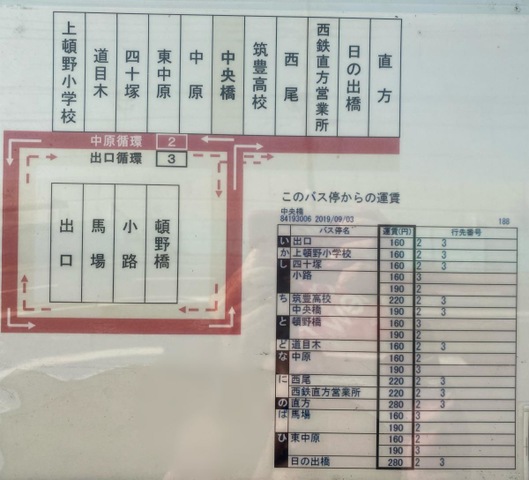 上頓野小学校
道目木
四十塚
東中原
中原
中央橋
筑豊高校
西尾
西鉄直方営業所
日の出橋
直方
中原循環 2
出口循環 3
出口
馬場
小路
頓野橋
このバス停からの運賃
中央橋
84193006 2019/09/03 188
バス停名 運賃(円) 行先番号
い 出口 160 2 3
か 上頓野小学校 160 2 3
し 四十塚 160 2 3
小路 160 3
190 2
ち 筑豊高校 220 2 3
中央橋 190 2 3
と 頓野橋 160 3
190 2
ど 道目木 160 2 3
な 中原 160 2
190 3
に 西尾 220 2 3
西鉄直方営業所 220 2 3
の 直方 280 2 3
ば 馬場 160 3
190 2
ひ 東中原 160 2
190 3
日の出橋 280 2 3